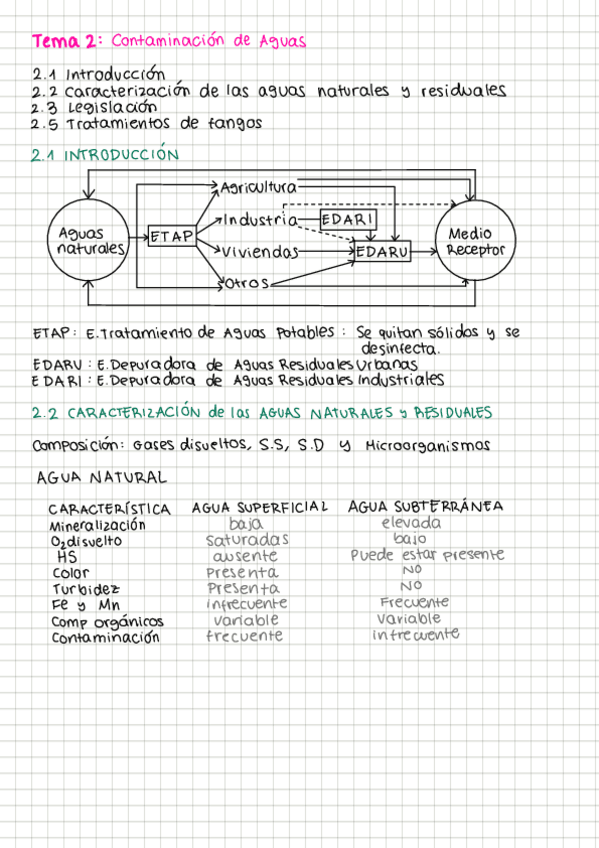 Tema 2: Contaminación de Aguas
2.1 Introducción
2.2 Caracterización de las aguas naturales y residuales
2.3 Legislación
2.5 Tratamientos de fangos
2.1 INTRODUCCIÓN
Agricultura
Industria EDARI
Aguas naturales ETAP Viviendas EDARU Medio Receptor
Otros
ETAP: E.Tratamiento de Aguas Potables: Se quitan sólidos y se
desinfecta.
EDARU: E.Depuradora de Aguas Residuales Urbanas
EDARI: E.Depuradora de Aguas Residuales Industriales
2.2 CARACTERIZACIÓN de las AGUAS NATURALES y RESIDUALES
Composición: Gases disueltos, S.S, S.D y Microorganismos
AGUA NATURAL
CARACTERÍSTICA AGUA SUPERFICIAL AGUA SUBTERRÁNEA
Mineralización baja elevada
O2 disuelto saturadas bajo
HS ausente Puede estar presente
Color Presenta NO
Turbidez Presenta NO
Fe y Mn infrecuente Frecuente
Comp orgánicos variable variable
Contaminación frecuente infrecuente